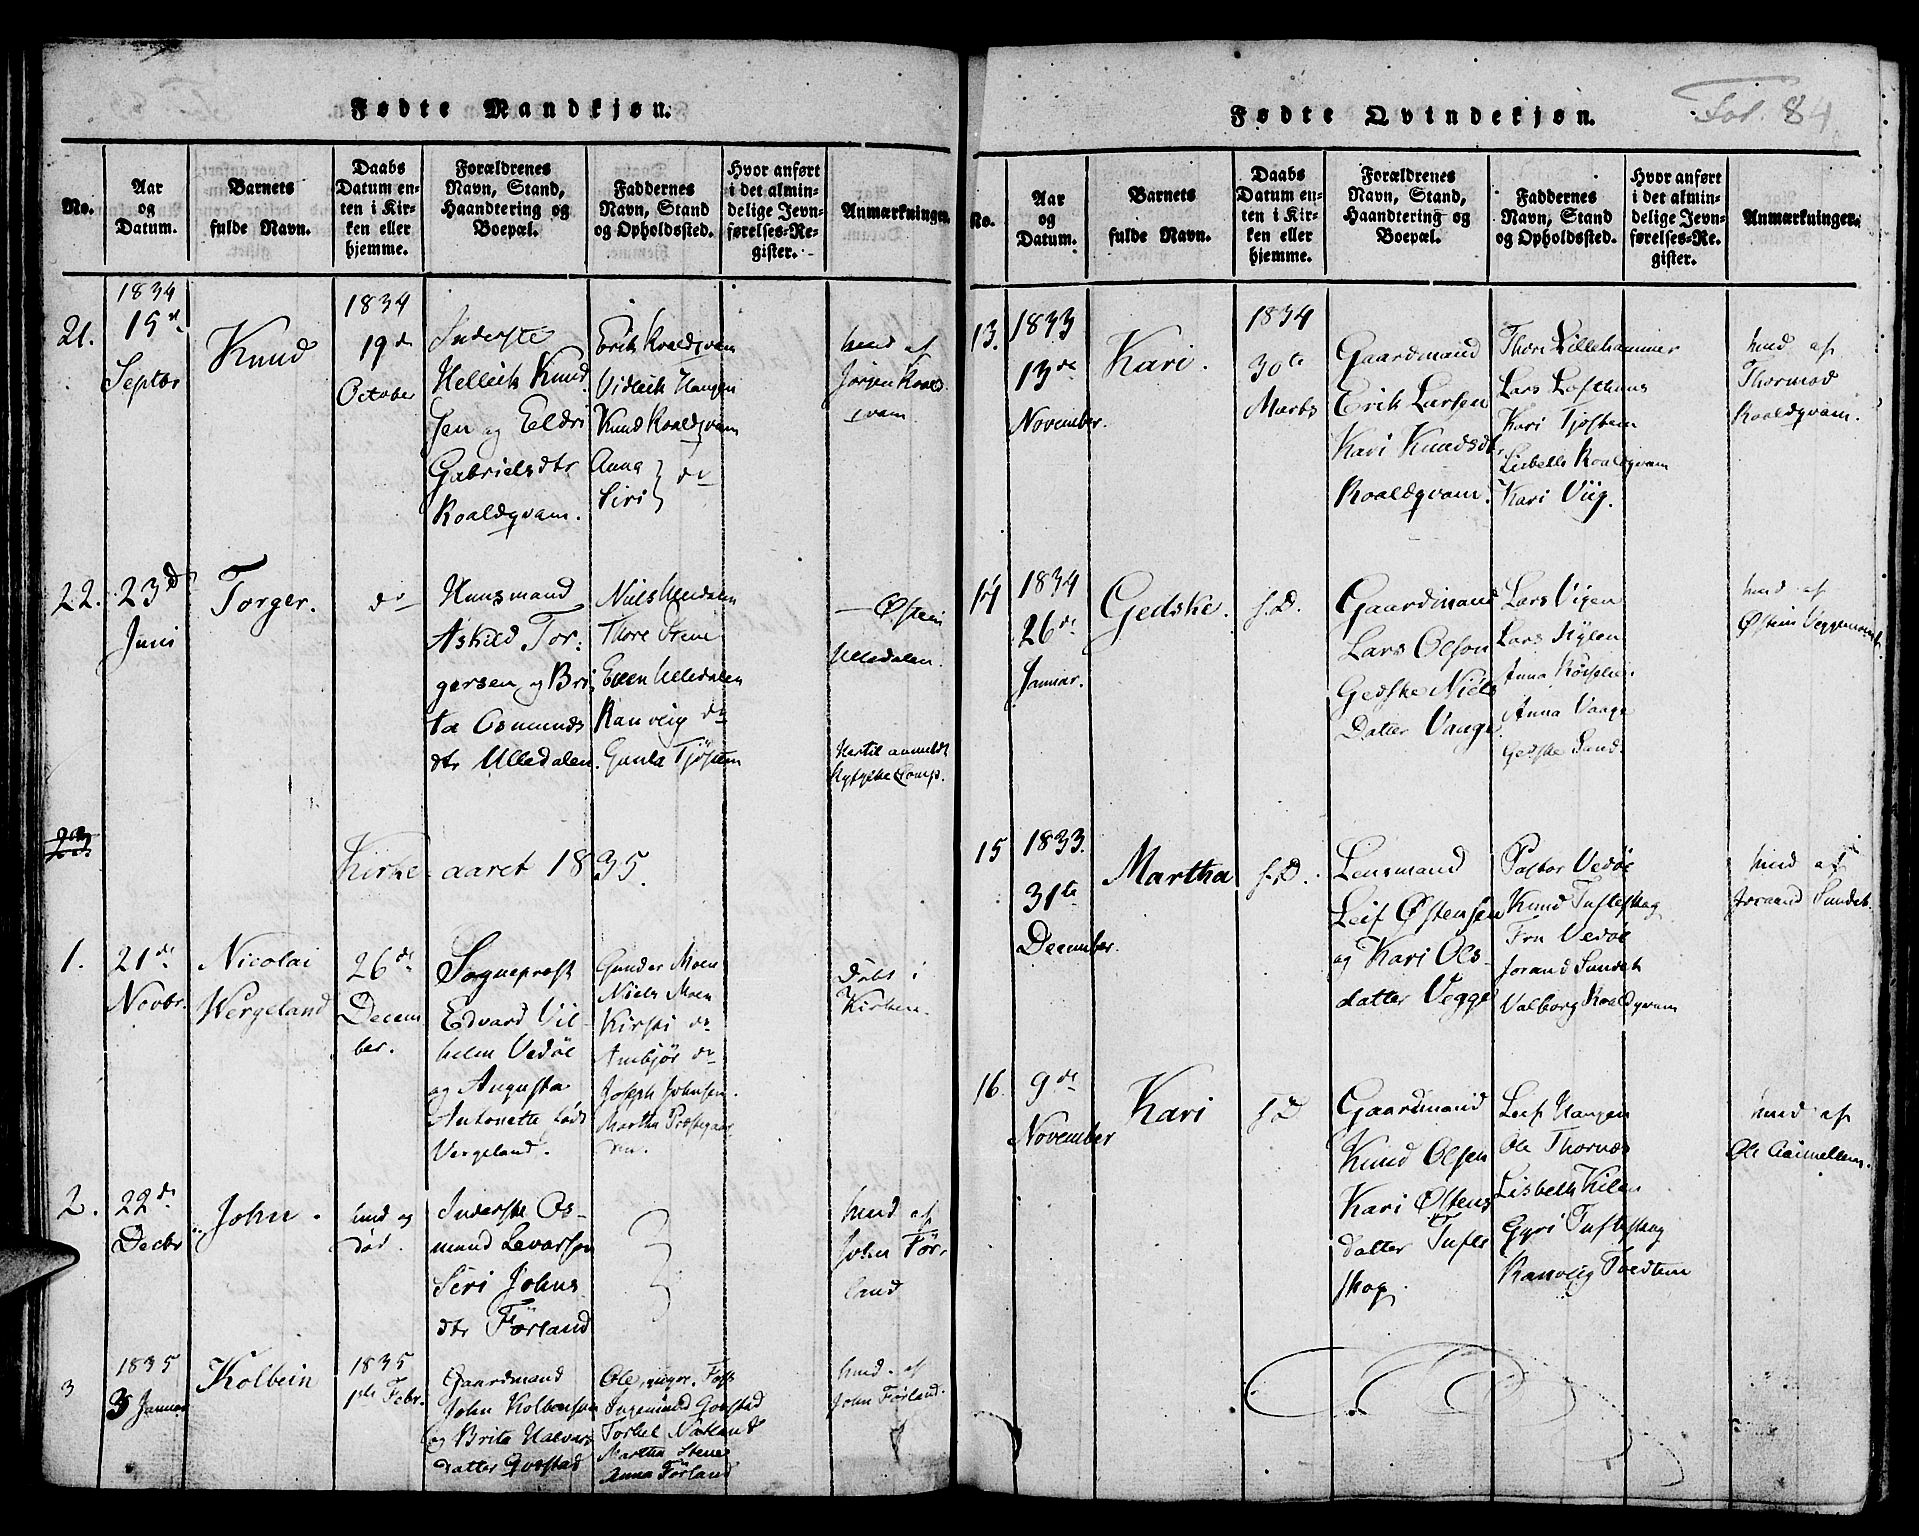 Fødte Mandkjøn.
No.
Aar
og
Datum.
Barnets
fulde Navn.
Daabs
Datum en-
ten i Kir-
ken eller
hjemme.
Forældrenes
Navn, Stand,
Haandtering og
Boepæl.
Faddernes
Navn, Stand
og Opholdssted.
Hvor anført
i det almin-
delige Jevn-
førelses-Re-
gister.
Anmærkninger.
21.
1834
15de
Septbr
Knud
1834
19de
October
Inderste
Helleik Knud
sen og Eldri
Gabrielsdtr
Roaldqvam.
Erik Roaldqvam
Vidleik Haugen
Knud Roaldqvam
Anna
Siri } do
hmd af
Jørgen Roald
qvam
22.
23d
Juni
Torger.
do
Huusmand
Askild Tor-
gersen og Bri
ta Osmunds
dtr Ulledalen.
Niels Ulledalen
Thore Stene
Even Ulledalen
Ranveig do
Gunla Tjøstem
— Østein
Ulledalen.
Hertil anmeldt
23.
Kirke-aaret 1835.
1.
21de
Novbr.
Nicolai
Wergeland
26de
Decem
ber.
Sogneprest
Edvard Vil-
helm Vedøe
og Augusta
Antonette, fød
Vergeland.
Gunder Moen
Niels Moen
Kirsti do
Ambjør do
Joseph Johnsen.
Martha Præstegaar
den.
Døbt i
Kirken.
2.
22de
Decbr
John.
hmd og
død.
Inderste Os-
mund Levorsen
Seri Johns
dtr Førland
hmd af
John Før-
land
3
1835
3 Januar
Kolbein
1835
1ste Febr.
Gaardmand
John Kolbensen
og Brita Halvors
datter Govstad
Ole, Foss
Ingemund Govstad
Torkel Natland
Martha Stene
Anna Førland
hmd. af
John Førland.
Fødte Qvindekjøn.
Fol. 84
No.
Aar
og
Datum.
Barnets
fulde Navn.
Daabs
Datum en-
ten i Kir-
ken eller
hjemme.
Forældrenes
Navn, Stand,
Haandtering og
Boepæl.
Faddernes
Navn, Stand
og Opholdssted.
Hvor anført
i det almin-
delige Jevn-
førelses-Re-
gister.
Anmærkninger.
13.
1833
13de
November.
Kari.
1834
30te
Marts
Gaardmand
Erik Larsen
Kari Knudsdtr
Roaldqvam.
Thori Lillehammer
Lars Lofthuus
Kari Tjøstem
Lisbeth Roaldqvam
Kari Viig.
hmd af
Thormod
Roaldqvam.
14
1834
26de
Januar.
Gedske.
s.D.
Gaardmand
Lars Olson
Gedske Niels
Datter Vaage.
Lars Vigen
Lars Hylen
Anna
Anna Vaage
Gedske Sand.
hmd af
Østein
15
1833.
31te
December.
Martha
s.D.
Lensmand
Leif Østensen
og Kari Ols-
datter Vegge
Pastor Vedøe
Knud Tufteskog
Fru Vedøe
Jorand Sundet
Valborg Roaldqvam
hmd af
Joraand Sundet.
16.
9de
November
Kari
s.D
Gaardmand
Knud Olsen
Kari Østens
datter Tufte
skog.
Leif Haugen
Ole Thornæs
Lisbeth Kilen
Gyri Tufteskog
Ranveig Tvedtem
hmd af